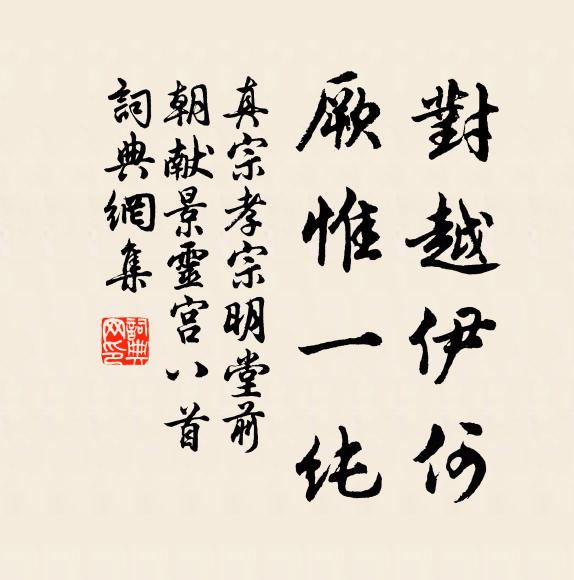 對越伊何
厥惟一纯
真宗孝宗明堂前
朝献景靈宫八首
詞典網集
詞典网印